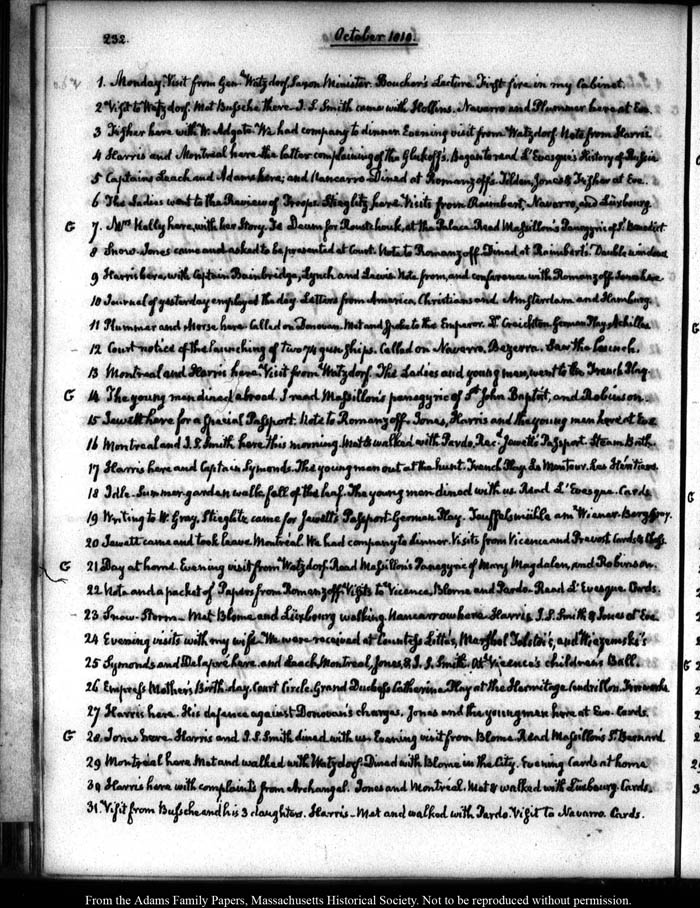 232.
October 1810.
1. Monday. Visit from Gen.l Watzdorf, Saxon Minister. Boucher's Lecture. First fire in my Cabinet.
2 Visit to Watzdorf. Met Bussche there. J. S. Smith came with Hollins. Navarro and Plummer here at Eve.
3 Fisher here with W. Adgate. We had company to dinner. Evening visit from Watzdorf. Note from Harris
4 Harris and Montreal here the latter complaining of the Began to read L'Evesque's History of Russia
5 Captains Leach and Adams here; and Navarro. Dined at Romanzoff's. Tilden, Jones & Fisher at Eve.
6 The Ladies went to the Review of Troops. Stieglitz here. Visits from Raimbert, Navarro, and Luxbourg
G 7. Mrs. Helly here, with her Story. Te Deum for Roustchouk, at the Palace. Read Massillon's Panegyric of St. Benedict
8 Snow. Jones came and asked to be presented at Court. Note to Romanzoff. Dined at Raimbert's. Double windows
9 Harris here, with Captain Bainbridge, Lynch and Lewis. Note from, and conference with Romanzoff. Jones here
10 Journal of yesterday employs the day. Letters from America, Christiansand Amsterdam and Hamburg.
11 Plummer and Morse here. Called on Donovan. Met and spoke to the Emperor. Dr. Creighton. German Play, Achilles
12 Court notice of the launching of two 74 gun ships. Called on Navarro, Bezerra. Saw the launch.
13 Montreal and Harris here. Visit from Watzdorf. The Ladies and young men, went to the French Play.
G 14. The young men dined abroad. I read Massillon's panegyric of St. John Baptist, and Robinson.
15 Jewett here for a Special Passport. Note to Romanzoff. Jones, Harris and the young men here at Eve
16 Montreal and J. S. Smith here this morning. Met & walked with Pardo. Rec.d Jewett's Passport. Steam Bath.
17 Harris here and Captain Symonds. The young men out at the hunt. French Play. Le Menteur. Les Héritiers.
18 Idle. Summer garden walk, fall of the leaf. The young men dined with us. Read L'Evesque. Cards
19 Writing to W. Gray. Stieglitz came for Jewett's Passport. German Play. Teuffelsmühle am Wiener-Berg. Gray.
20 Jewett came and took leave. Montreal. We had company to dinner. Visits from Vicence and Prevost. Cards & Chess.
G 21 Day at home. Evening visit from Watzdorf. Read Massillon's Panegyric of Mary Magdalen, and Robinson.
22 Note and a packet of Papers from Romanzoff. Visits to Vicence, Blome and Pardo. Read L'Evesque. Cards.
23. Snow-Storm. Met Blome and Luxbourg walking. Navarro here. Harris, J. S. Smith & Jones at Eve
24 Evening visits with my wife. We were received at Countess Litta's, Marshal Tolstoi's, and Wiazemski's
25 Symonds and Delapré here. and Leach, Montreal, Jones, & J. S. Smith. At Vicence's childrens Ball.
26 Empress Mother's Birth-day. Court Circle. Grand Duchess Catherine. Play at the Hermitage Cendrillon. Fireworks
27 Harris here. His defence against Donovan's charges. Jones and the young men here at Eve. Cards.
G 28. Jones here. Harris and J. S. Smith dined with us. Evening visit from Blome. Read Massillon's St. Bernard
29 Montreal here. Met and walked with Watzdorf. Dined with Blome in the City. Evening Cards at home
30 Harris here with complaints from Archangel. Jones and Montreal. Met & walked with Luxbourg. Cards.
31. Visit from Bussche and his 3 daughters. Harris. Met and walked with Pardo. Visit to Navarro. Cards.
From the Adams Family Papers, Massachusetts Historical Society. Not to be reproduced without permission.